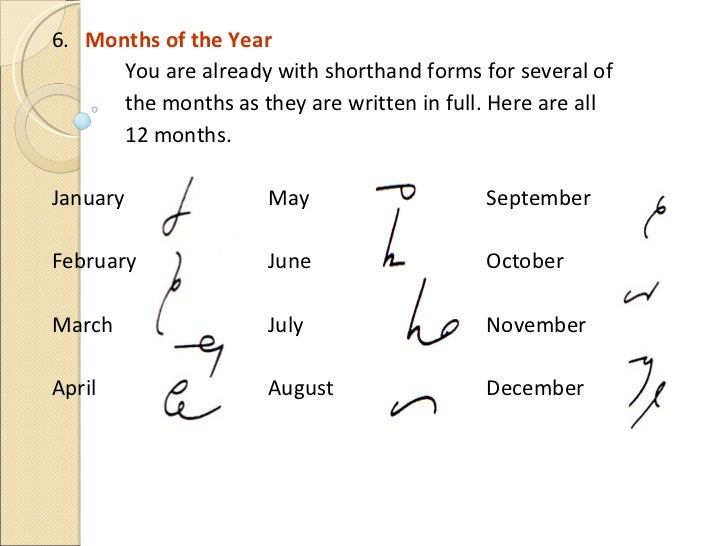 6. Months of the Year
You are already with shorthand forms for several of
the months as they are written in full. Here are all
12 months.
January May September
February June October
March July November
April August December